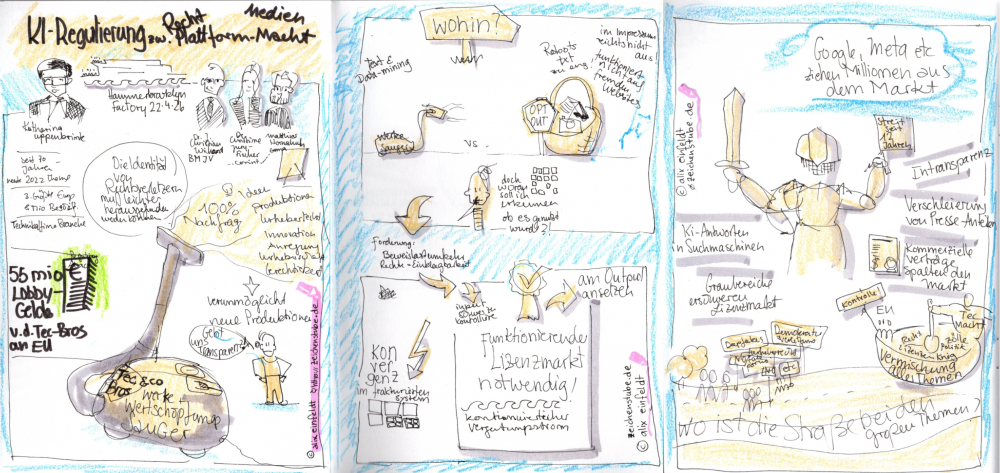 KI-Regulierung zw. Recht Medien
Plattform-Macht
Factory 22.4.26
Katharina
Uppenbrink
Dr. Christian
BMJV
Dr. Christine
Fischer
Matthias
Hornschuh
seit 70
Jahren
2022 Thema
Die Identität
von
Rechtebesitzern
muss leichter
herausgefunden
werden können
100%
Nachfrag
Ideen
Produktions
Urheberrecht
Innovation
Anregung
55 mio €
Lobby
Gelder
v.d. Tec-Bros
an EU
verunmöglicht
neue Produktionen
Gebt
uns
Transparenz
Tec & co
Bros
Werke
Wertschöpfung
Sauger
© alix einfeldt
zeichenstube.de
wohin?
Text &
Data-mining
Robots
txt
zu eng
im Impressum
reicht's nicht aus
funktioniert
nicht auf
fremden
Websites
OPT
OUT
Werke
Sauger
VS.
doch
woran
soll ich
erkennen
ob es genutzt
wurde?!
Forderung:
Beweislastumkehr
Rechte-Einklagbarkeit
input
kontrolliere
am Output
ansetzen
Kon
ver
genz
im frakturierten
System
Funktionierender
Lizenzmarkt
notwendig!
kontinuierlicher
Vergütungsstrom
zeichenstube.de
© alix einfeldt
Google, Meta etc
ziehen Millionen aus
dem Markt
© alix einfeldt
zeichenstube.de
Streit
seit
Jahren
Intransparenz
Verschleierung
von Presse-Anteilen
KI-Antworten
in Suchmaschinen
Kommerzielle
Verträge
spalten den
Markt
Graubereiche
erzwingen
Lizenzmarkt
Kontrolle
EU
Tec
Macht
Zölle
Politik
Recht
Vermischung
aller Themen
Deepfakes
Demokratie
Urheberrecht
etc
Wo ist die Straße bei den
großen Themen?